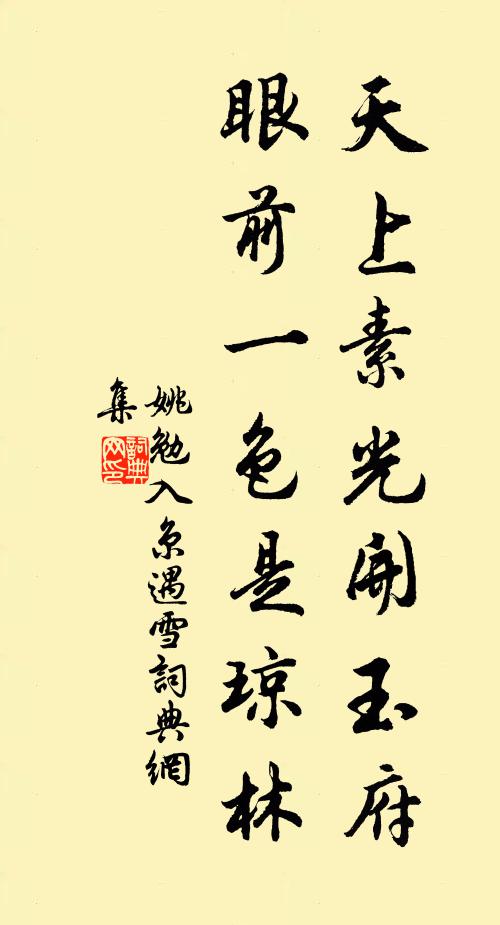 天上素光開玉府
眼前一色是琼林
姚勉入京遇雪詞典網
集
詞典网印